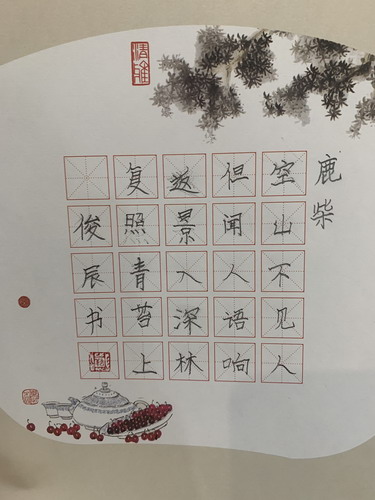 鹿柴
空山不见人
但闻人语响
返景入深林
复照青苔上
俊辰书
清雅